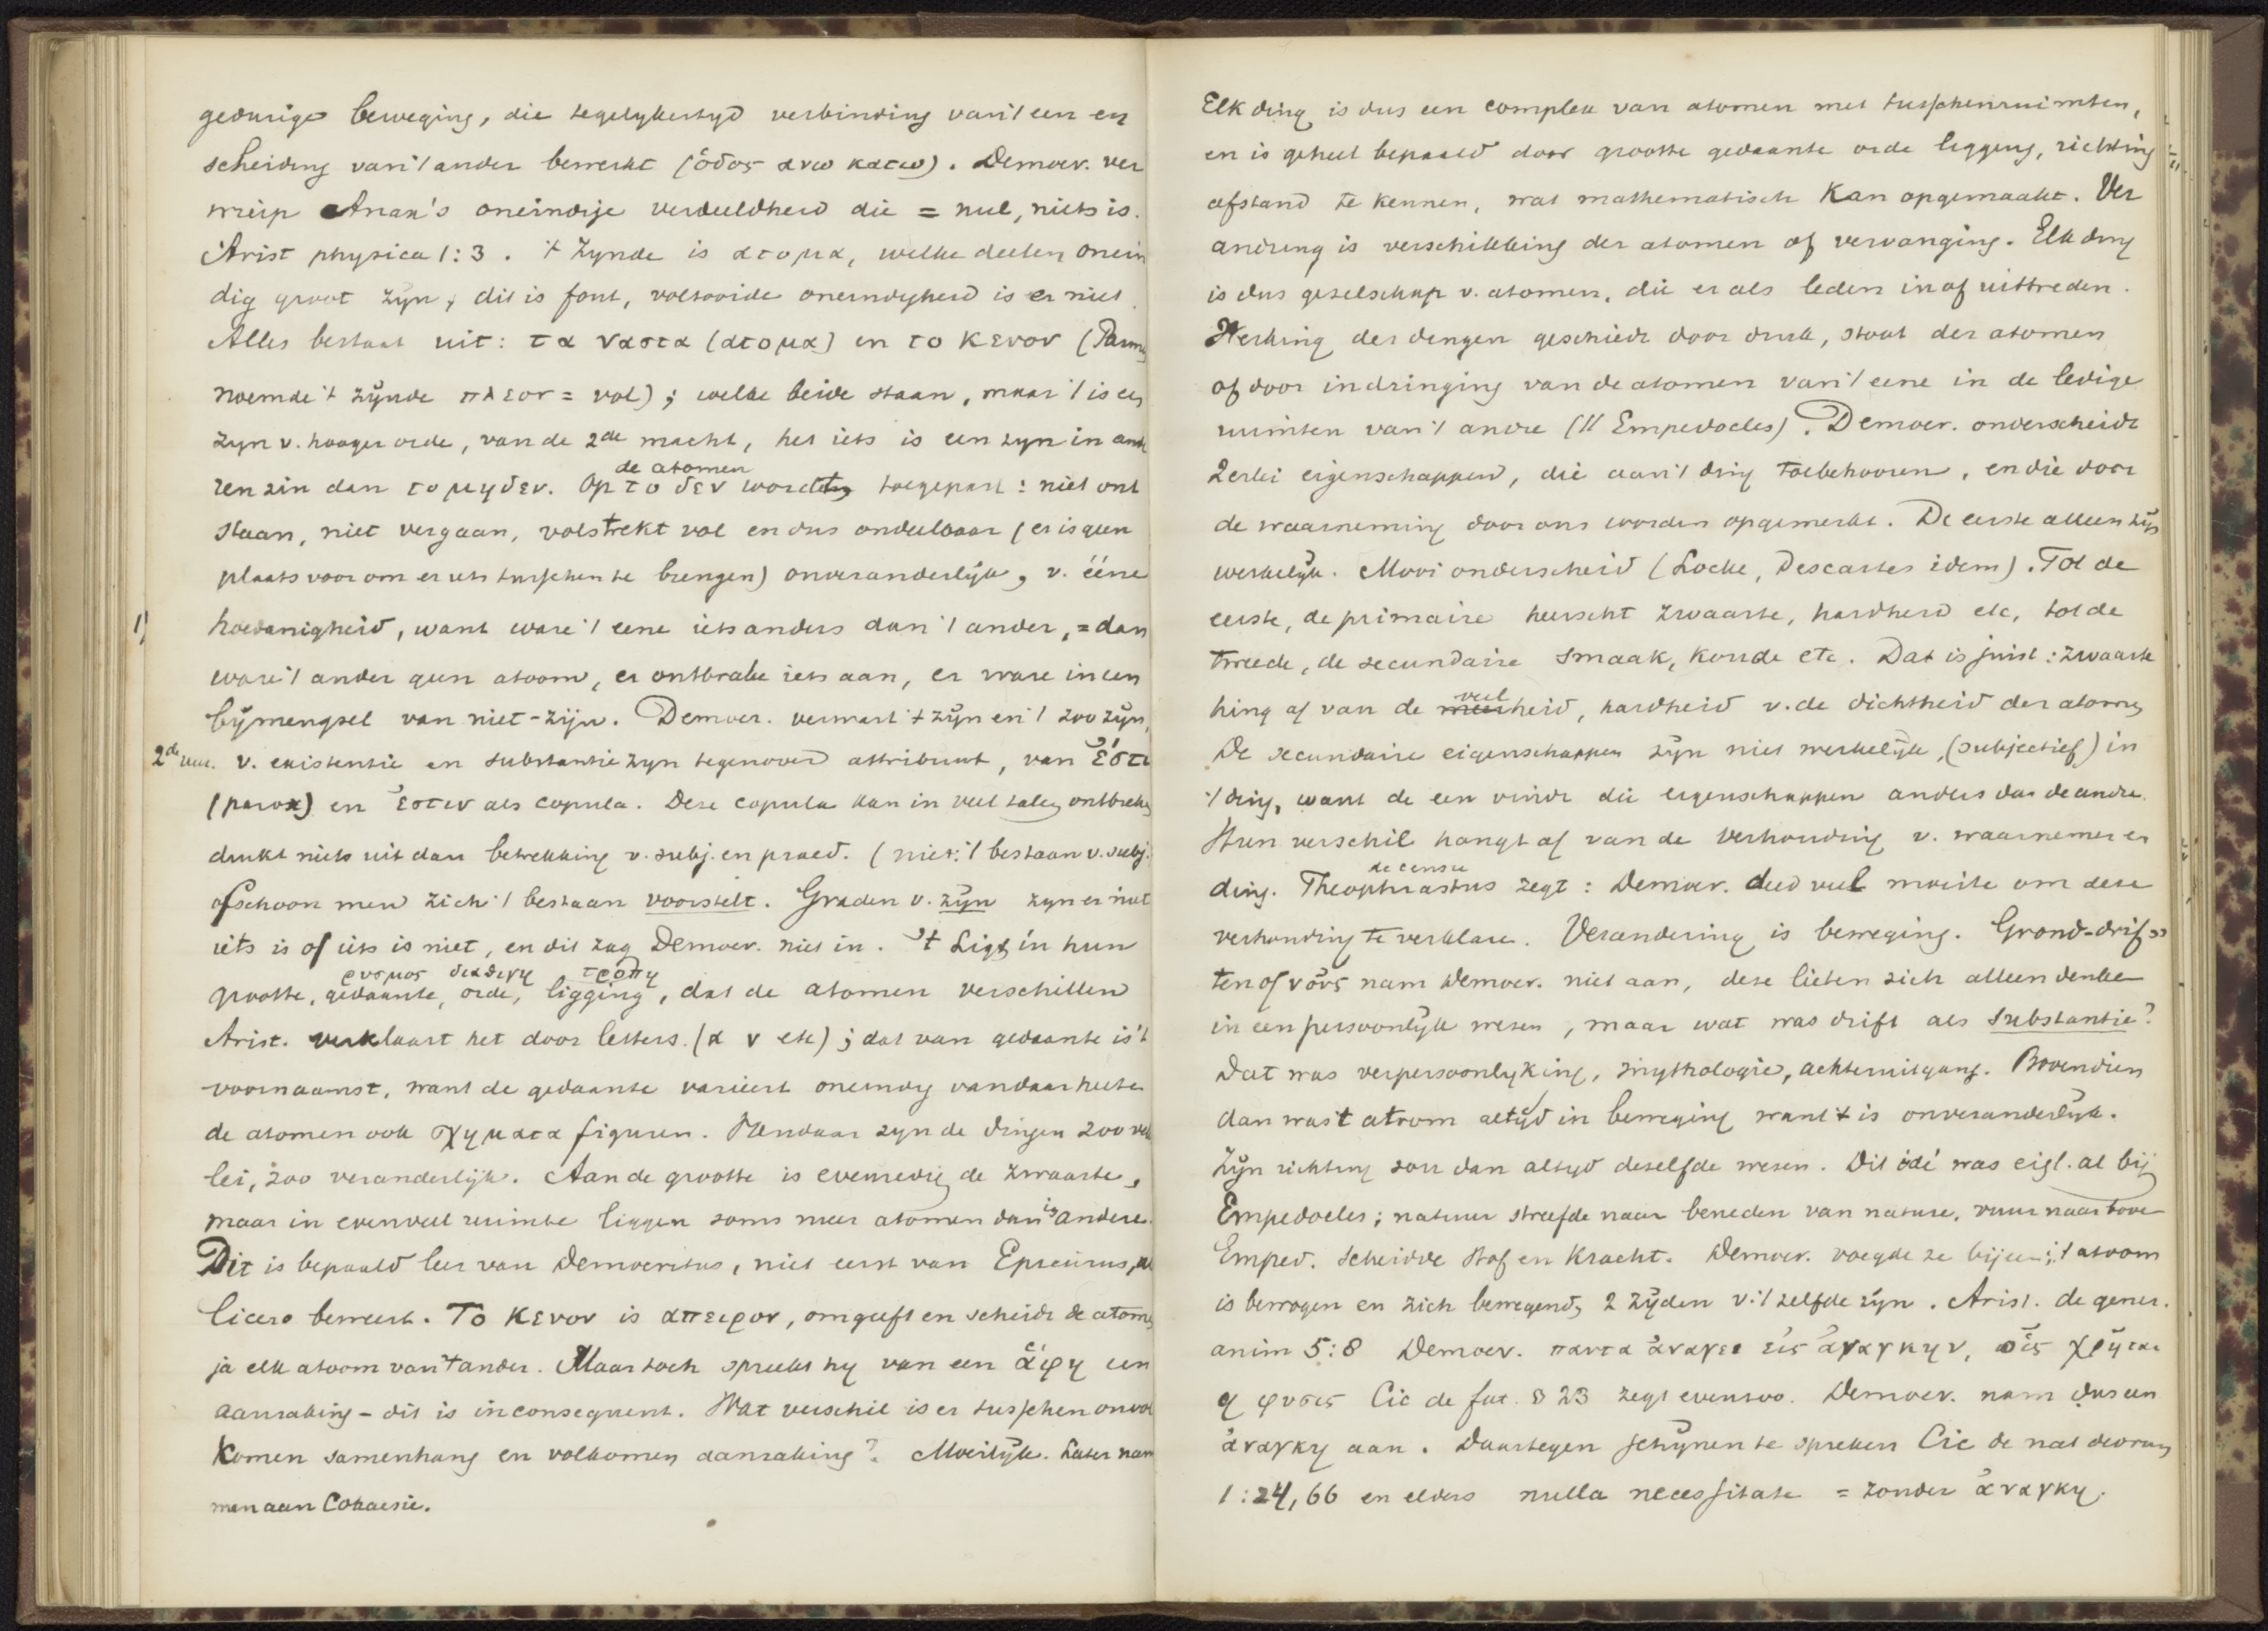 gedurige beweging, die tegelykertyd verbinding van 't een en
scheiding van 't ander bewerkt (ὁδος ανω κατω). Democr. ver
wierp Anax's oneindige verdeeldheid die = nul, niets is.
Arist physica 1:3. 't Zynde is ατομα, welke deelen onein
dig groot zyn, dit is fout, voltooide oneindigheid is er niet.
Alles bestaat uit: τα ναστα (ατομα) en το κενον (Parm
noemde 't zÿnde πλεον = vol); welke beide staan, maar 't is een
zyn v. hooger orde, van de 2de macht, het iets is een zyn in and
ren zin dan το μηδεν. Op το δεν de atomen wordt toegepast: niet ont
staan, niet vergaan, volstrekt vol en dus ondeelbaar (er is geen
plaats voor om er iets tusschen te brengen) onveranderlÿk, v. ééne
1) hoedanigheid, want ware 't eene iets anders dan 't ander, = dan
ware 't ander geen atoom, er ontbrake iets aan, er ware in een
bÿmengsel van niet-zijn. Democr. verwart 't zÿn en 't zoo zÿn,
2de uur. v. existentie en substantie zyn tegenover attribuut, van ἔστι
(parox) en ἐστιν als copula. Deze copula kan in veel talen ontbreken
drukt niets uit dan betrekking v. subj. en praed. (niet: 't bestaan v. subj.
ofschoon men zich 't bestaan voorstelt. Graden v. zÿn zyn er niet
iets is of iets is niet, en dit zag Democr. niet in. 't Ligt in hun
ρυσμος διαθιγη τροπη
grootte, gedaante, orde, ligging, dat de atomen verschillen
Arist. verklaart het door letters. (α ν etc); dat van gedaante is 't
voornaamst, want de gedaante varieert oneindig vandaar heeten
de atomen ook σχηματα figuren. Vandaar zyn de dingen zoo veler
lei, zoo veranderlijk. Aan de grootte is evenredig de zwaarte,
maar in evenveel ruimte liggen soms meer atomen dan in andere.
Dit is bepaald leer van Democritus, niet eerst van Epicurus, als
Cicero beweert. Το κενον is απειρον, omgeeft en scheidt de atomen
ja elk atoom van 't ander. Maar toch spreekt hy van een ἁφη een
aanraking – dit is inconsequent. Wat verschil is er tusschen onvol
komen samenhang en volkomen aanraking? Moeilÿk. Later nam
men aan Cohaesie.
Elk ding is dus een complex van atomen met tusschenruimten,
en is geheel bepaald door grootte gedaante orde ligging, richting
afstand te kennen, wat mathematisch kan opgemaakt. Ver
andring is verschikking der atomen of vervanging. Elk ding
is dus gezelschap v. atomen, die er als leden in of uittreden.
Werking der dingen geschiedt door druk, stoot der atomen
of door indringing van de atomen van 't eene in de ledige
ruimten van 't andre (// Empedocles). Democr. onderscheidt
2erlei eigenschappen, die aan 't ding toebehooren, en die door
de waarneming door ons worden opgemerkt. De eerste alleen zÿn
werkelÿk. Mooi onderscheid (Locke, Descartes idem). Tot de
eerste, de primaire heerscht zwaarte, hardheid etc, tot de
tweede, de secundaire smaak, koude etc. Dat is juist: zwaarte
hing af van de veelheid, hardheid v. de dichtheid der atomen
De secundaire eigenschappen zÿn niet werkelÿk, (subjectief) in
't ding, want de een vindt die eigenschappen anders dan de andre.
Hun verschil hangt af van de verhouding v. waarnemer en
ding. Theophrastus de censu zegt: Democr. deed veel moeite om deze
verhouding te verklaren. Verandering is beweging. Grond-drif=
ten of νοῦς nam Democr. niet aan, deze lieten zich alleen denken
in een persoonlÿk wezen, maar wat was drift als substantie?
Dat was verpersoonlyking, mythologie, achteruitgang. Bovendien
dan was 't atoom altÿd in beweging want 't is onveranderlÿk.
Zÿn richting zou dan altyd dezelfde wezen. Dit idé was eigl. al bij
Empedocles; natuur streefde naar beneden van nature, vuur naar boven
Emped. scheidde stof en kracht. Democr. voegde ze bijeen; 't atoom
is bewogen en zich bewegend, 2 zÿden v. 't zelfde zÿn. Arist. de gener.
anim 5:8 Democr. παντα ἀναγει εἰς ἀναγκην, οἷς χρῆται
η φυσις Cic de fat. § 23 zegt evenzoo. Democr. nam dus een
ἀναγκη aan. Daartegen schÿnen te spreken Cic de nat deorum
1:24, 66 en elders nulla necessitate = zonder ἀναγκη.